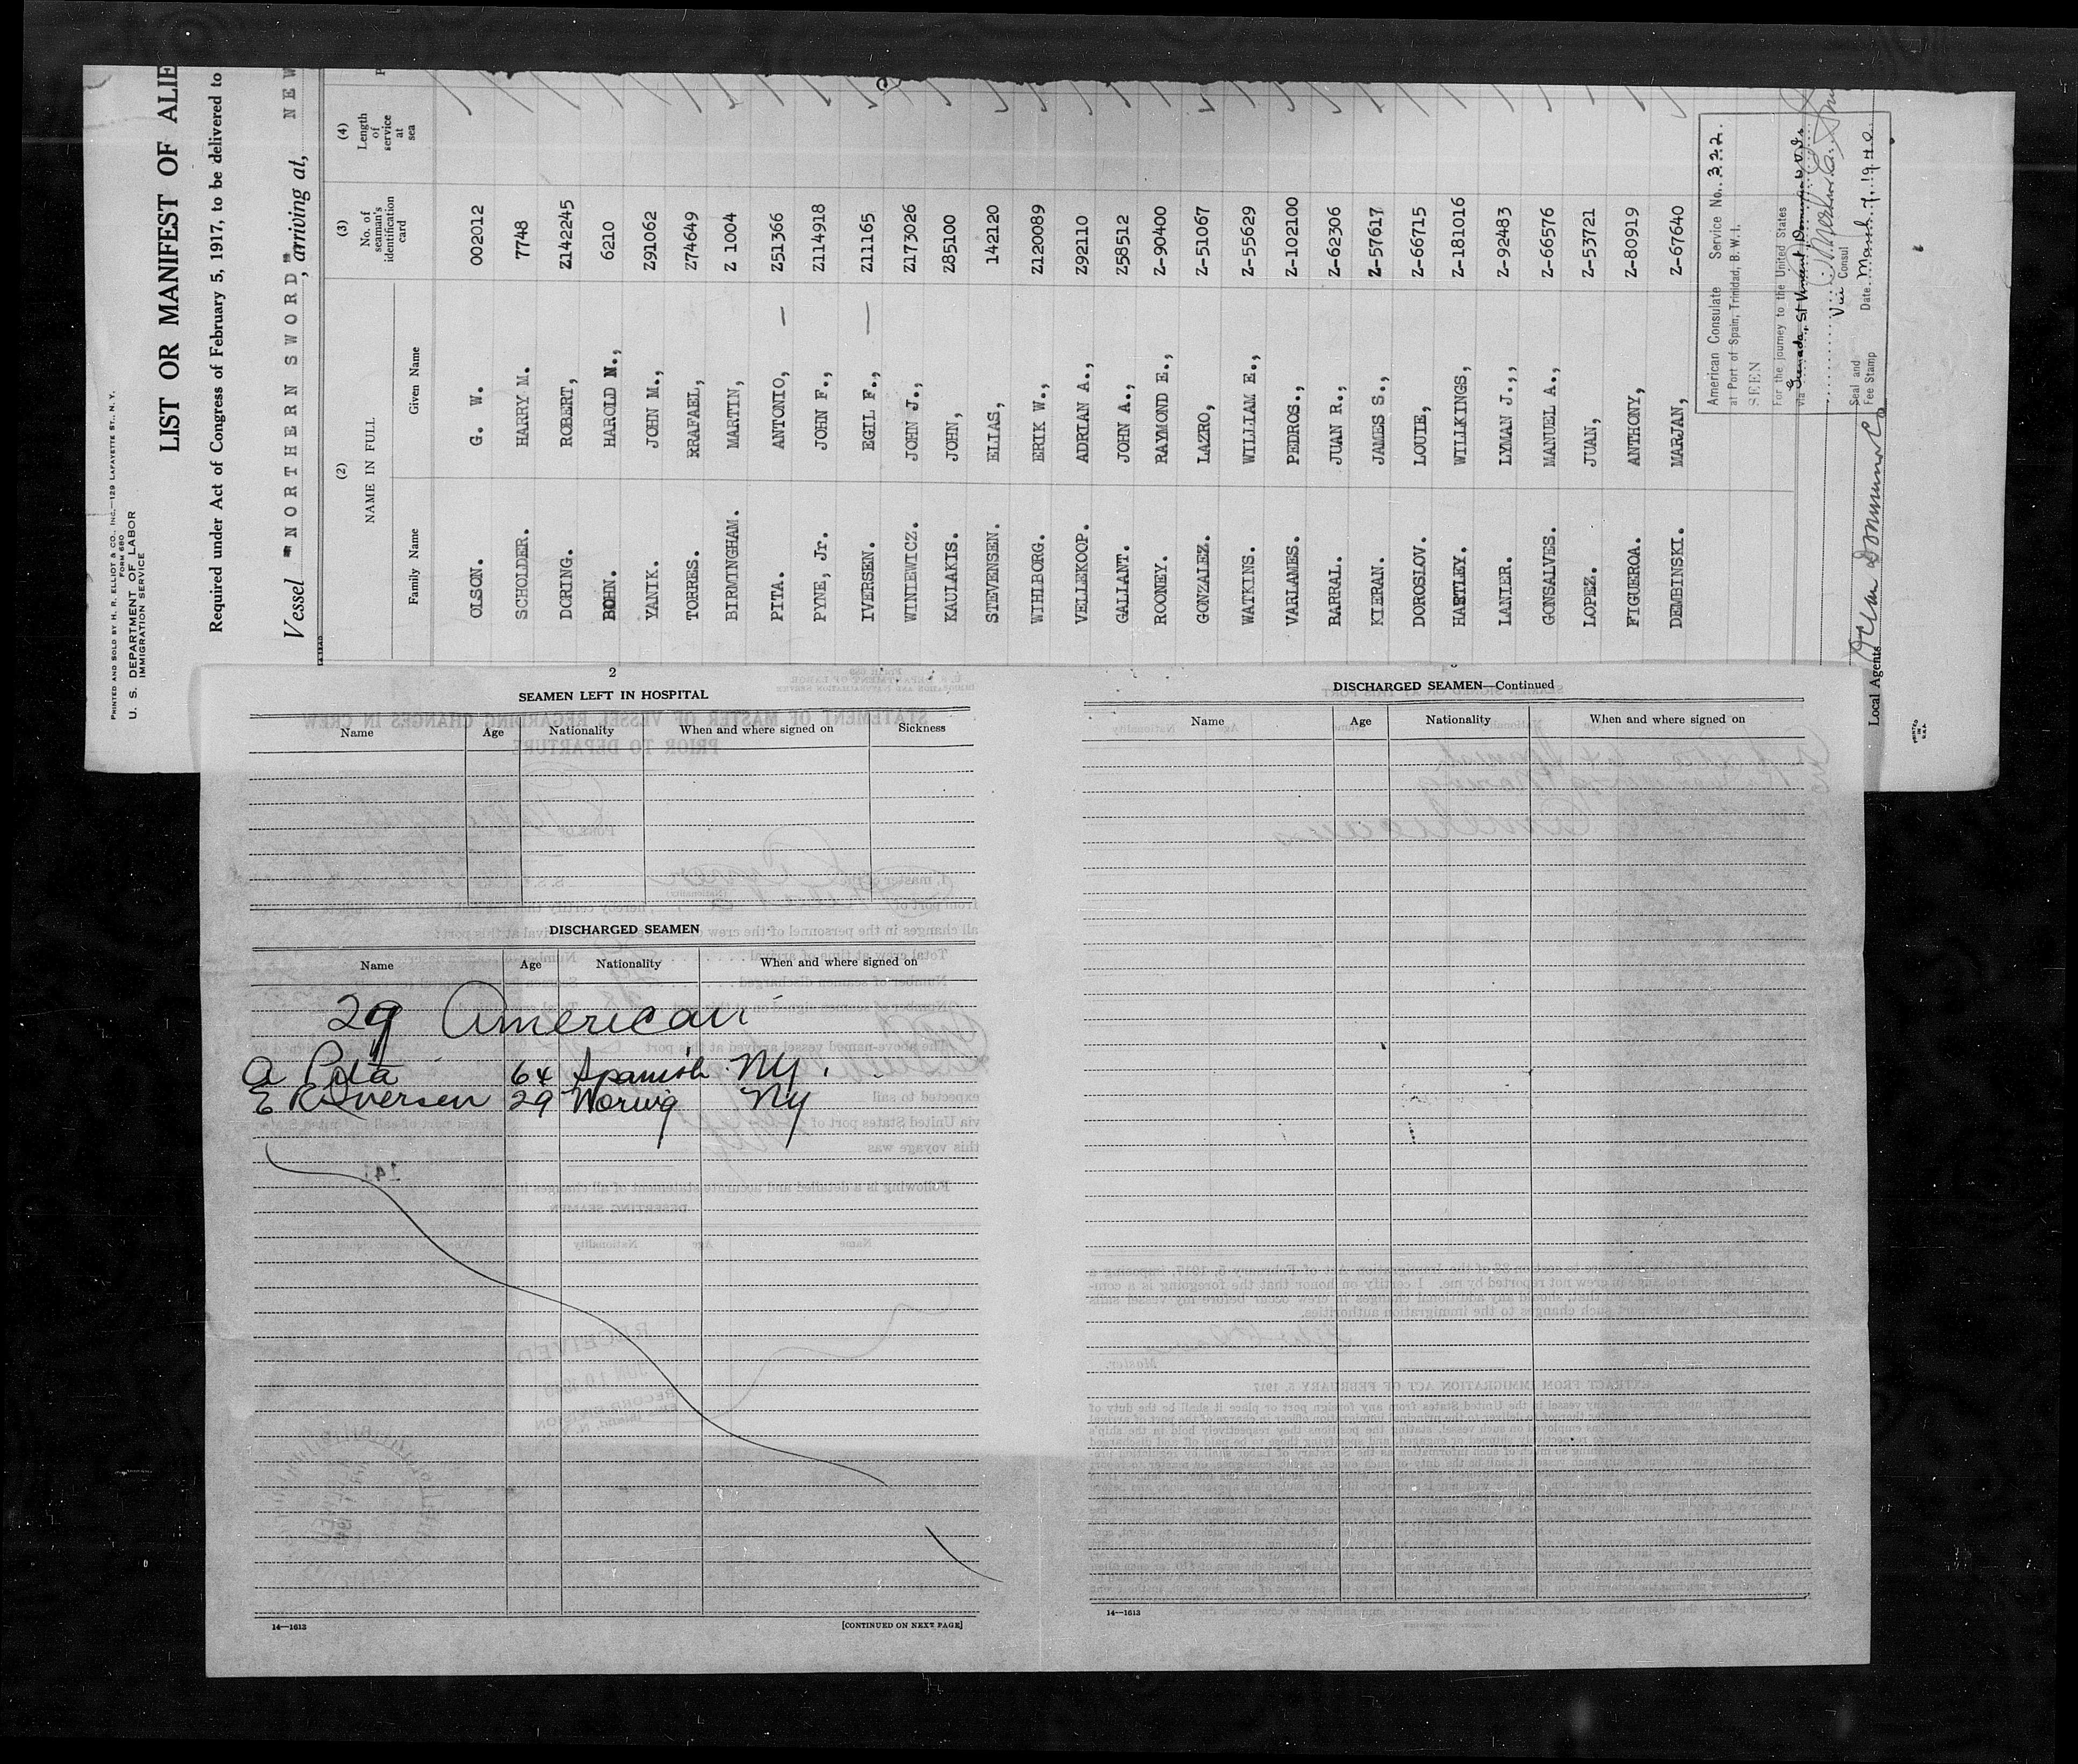 PRINTED AND SOLD BY H. R. ELLIOT & CO., INC.—129 LAFAYETTE ST., N.Y.
FORM 680
U. S. DEPARTMENT OF LABOR
IMMIGRATION SERVICE
LIST OR MANIFEST OF ALIE
Required under Act of Congress of February 5, 1917, to be delivered to
Vessel "NORTHERN SWORD", arriving at, NEW
(2) (3) (4)
NAME IN FULL No. of seaman's identification card Length of service at sea
Family Name Given Name
OLSON. G. W. 002012
SCHOLDER. HARRY M. 7748
DORING. ROBERT, Z142245
BOHN. HAROLD N., 6210
YANIK. JOHN M., Z91062
TORRES. RRAFAEL, Z74649
BIRMINGHAM. MARTIN, Z 1004
PITA. ANTONIO, — Z51366
PYNE, Jr. JOHN F., Z114918
IVERSEN. EGIL F., — Z11165
WINIEWICZ. JOHN J., Z173026
KAULAKIS. JOHN, Z85100
STEVENSEN. ELIAS, 142120
WIHLBORG. ERIK W., Z120089
VELLEKOOP. ADRIAN A., Z92110
GALLANT. JOHN A., Z58512
ROONEY. RAYMOND E., Z-90400
GONZALEZ. LAZRO, Z-51067
WATKINS. WILLIAM E., Z-55629
VARLAMES. PEDROS., Z-102100
BARRAL. JUAN R., Z-62306
KIERAN. JAMES S., Z-57617
DOROSLOV. LOUIE, Z-66715
HARTLEY. WILLKINGS, Z-181016
LANIER. LYMAN J.,, Z-92483
GONSALVES. MANUEL A., Z-66576
LOPEZ. JUAN, Z-53721
FIGUEROA. ANTHONY, Z-80919
DEMBINSKI. MARJAN, Z-67640
American Consulate Service No. 322.
at Port of Spain, Trinidad, B.W.I.
SEEN
For the journey to the United States
via Grenada, St Vincent,
Vice Consul
Seal and
Fee Stamp Date March 7, 1940
Local Agents
PRINTED IN U.S.A.
2
SEAMEN LEFT IN HOSPITAL
Name Age Nationality When and where signed on Sickness
DISCHARGED SEAMEN
Name Age Nationality When and where signed on
29 American
A Pita 64 Spanish NY.
29 Norwig NY
14—1613 [CONTINUED ON NEXT PAGE]
DISCHARGED SEAMEN—Continued
Name Age Nationality When and where signed on
14—1613